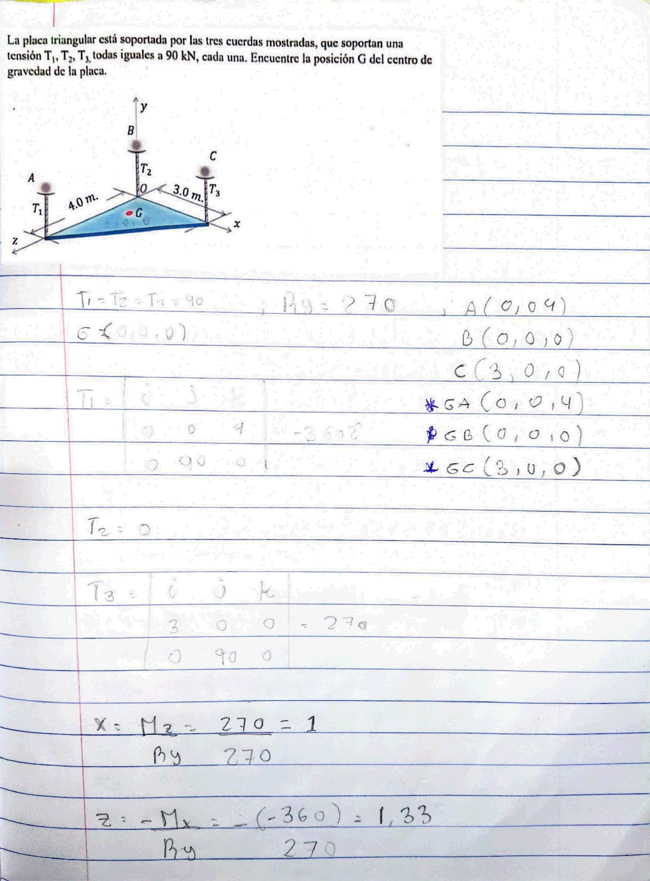 La placa triangular está soportada por las tres cuerdas mostradas, que soportan una
tensión T₁, T₂, T₃, todas iguales a 90 kN, cada una. Encuentre la posición G del centro de
gravedad de la placa.
y
B
C
A
T₂
T₁
4.0 m.
O
3.0 m.
T₃
G
x
z
T₁ = T₂ = T₃ = 90 ; Ry = 270 , A(0,04)
G (0,0,0) B(0,0,0)
C(3,0,0)
T₁ = i j k * GA(0,0,4)
0 0 4 = -360 * GB(0,0,0)
0 90 0 * GC(3,0,0)
T₂ = 0
T₃ = i j k
3 0 0 = 270
0 90 0
x = Mz = 270 = 1
Ry 270
z = -Mx = -(-360) = 1,33
Ry 270